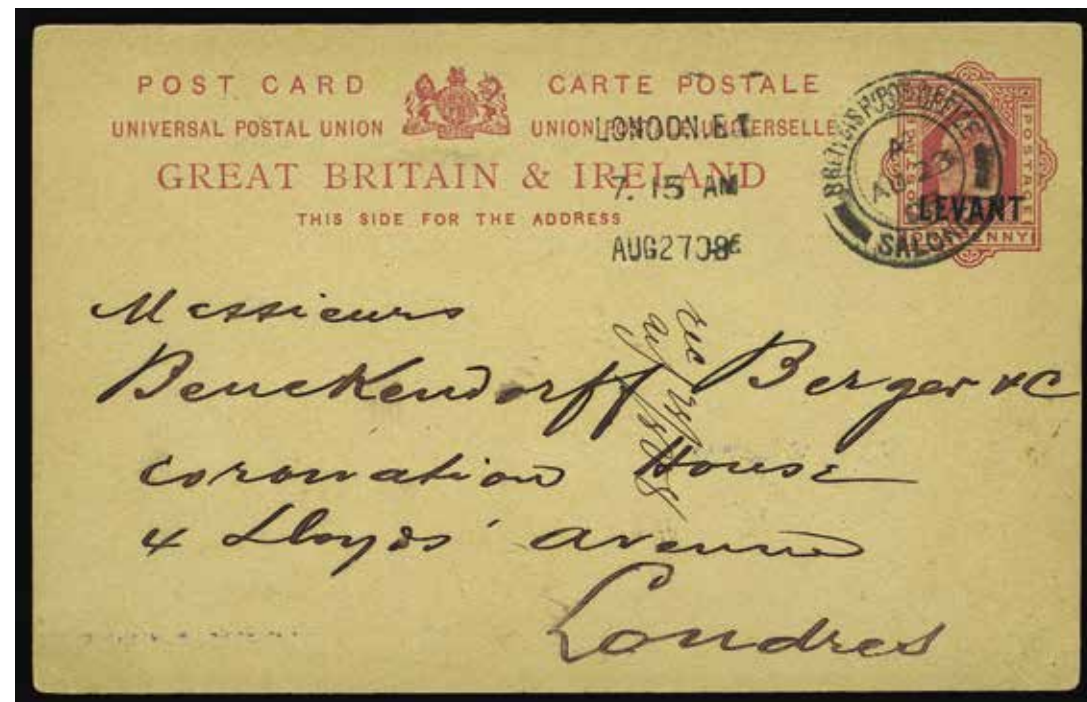 POST CARD CARTE POSTALE
UNIVERSAL POSTAL UNION UNION POSTALE UNIVERSELLE
GREAT BRITAIN & IRELAND
THIS SIDE FOR THE ADDRESS
LONDON. E.
7. 15 AM
AUG 27 08
BRITISH POST OFFICE
A
AU 23
POSTAGE
PENNY
LEVANT
Messieurs
Benckendorff Berger & C
Coronation House
4 Lloyds' Avenue
Londres